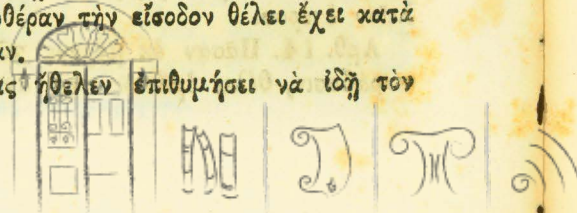 θέραν τὴν εἴσοδον θέλει ἔχει κατὰ
αν.
ας ἤθελεν ἐπιθυμήσει νὰ ἰδῇ τὸν